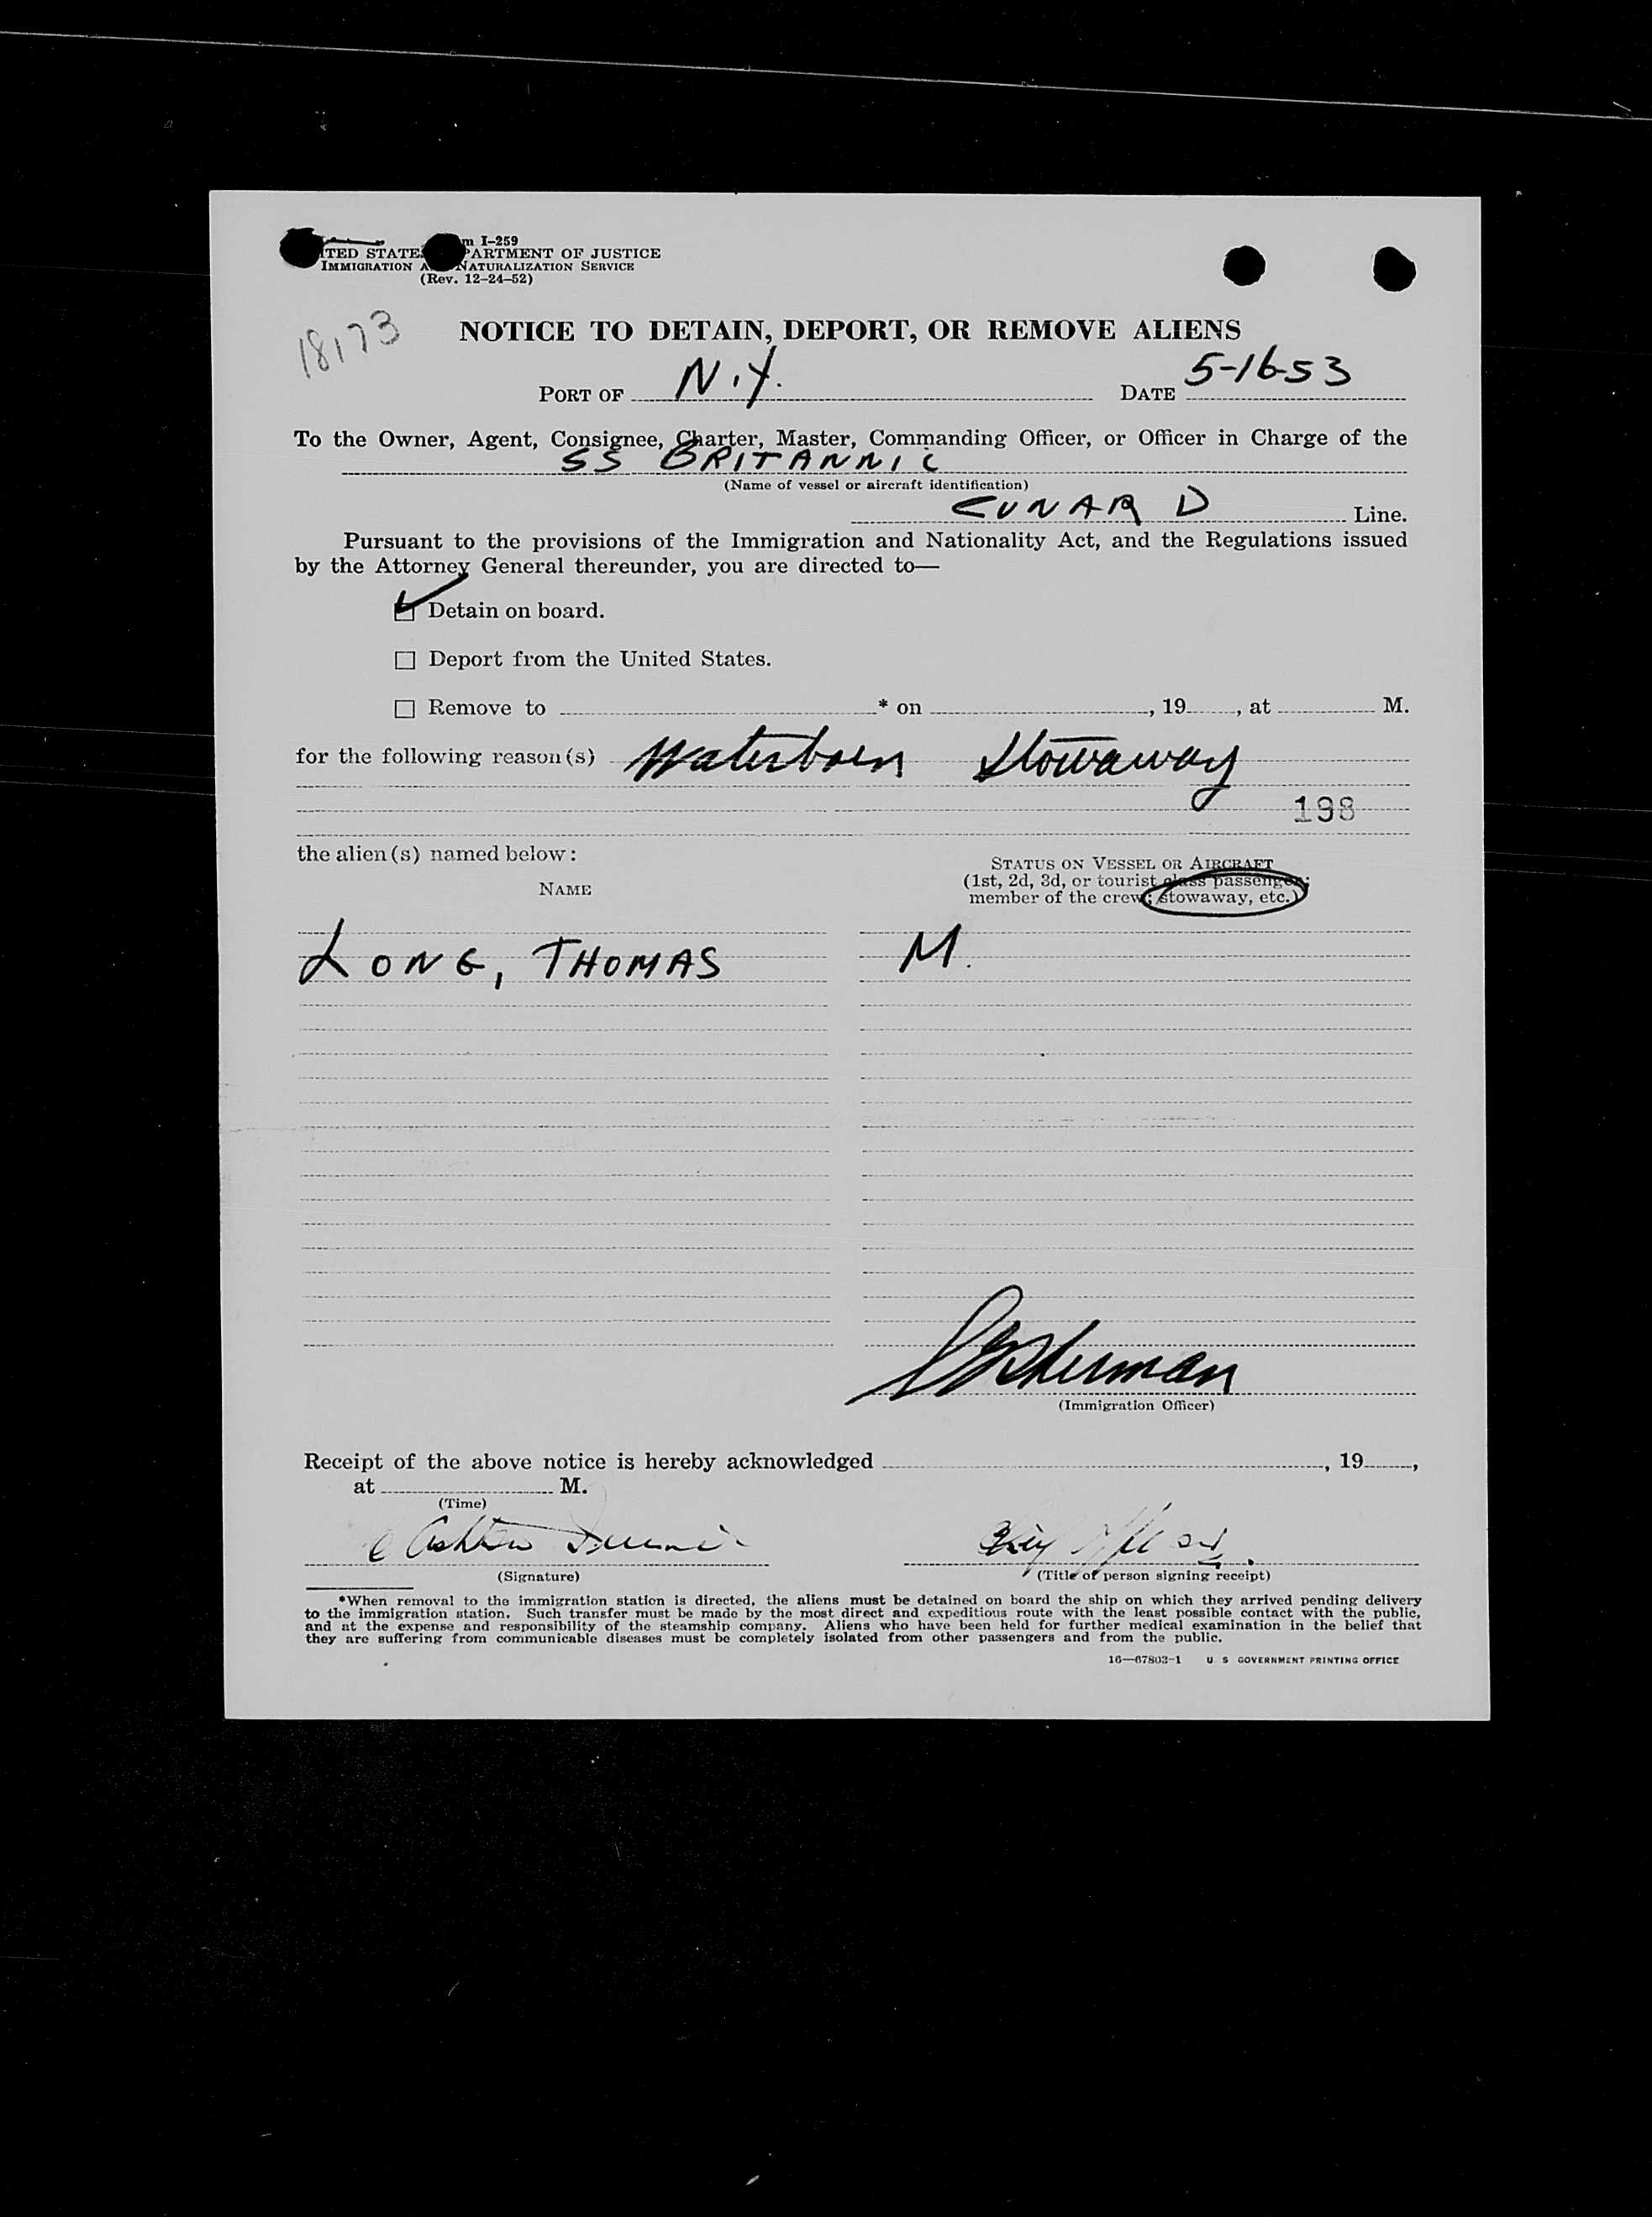 m I-259
ITED STATES PARTMENT OF JUSTICE
IMMIGRATION A NATURALIZATION SERVICE
(Rev. 12-24-52)
18173
NOTICE TO DETAIN, DEPORT, OR REMOVE ALIENS
PORT OF N.Y. DATE 5-16-53
To the Owner, Agent, Consignee, Charter, Master, Commanding Officer, or Officer in Charge of the
SS BRITANNIC
(Name of vessel or aircraft identification)
CUNARD Line.
Pursuant to the provisions of the Immigration and Nationality Act, and the Regulations issued
by the Attorney General thereunder, you are directed to—
Detain on board.
Deport from the United States.
Remove to * on , 19 , at M.
for the following reason(s) Waterborn Stowaway
198
the alien(s) named below:
NAME
STATUS ON VESSEL OR AIRCRAFT
(1st, 2d, 3d, or tourist class passenger;
member of the crew; stowaway, etc.)
LONG, THOMAS M.
Sherman
(Immigration Officer)
Receipt of the above notice is hereby acknowledged , 19 ,
at M.
(Time)
(Signature)
(Title of person signing receipt)
*When removal to the immigration station is directed, the aliens must be detained on board the ship on which they arrived pending delivery
to the immigration station. Such transfer must be made by the most direct and expeditious route with the least possible contact with the public,
and at the expense and responsibility of the steamship company. Aliens who have been held for further medical examination in the belief that
they are suffering from communicable diseases must be completely isolated from other passengers and from the public.
16—67803-1 U S GOVERNMENT PRINTING OFFICE